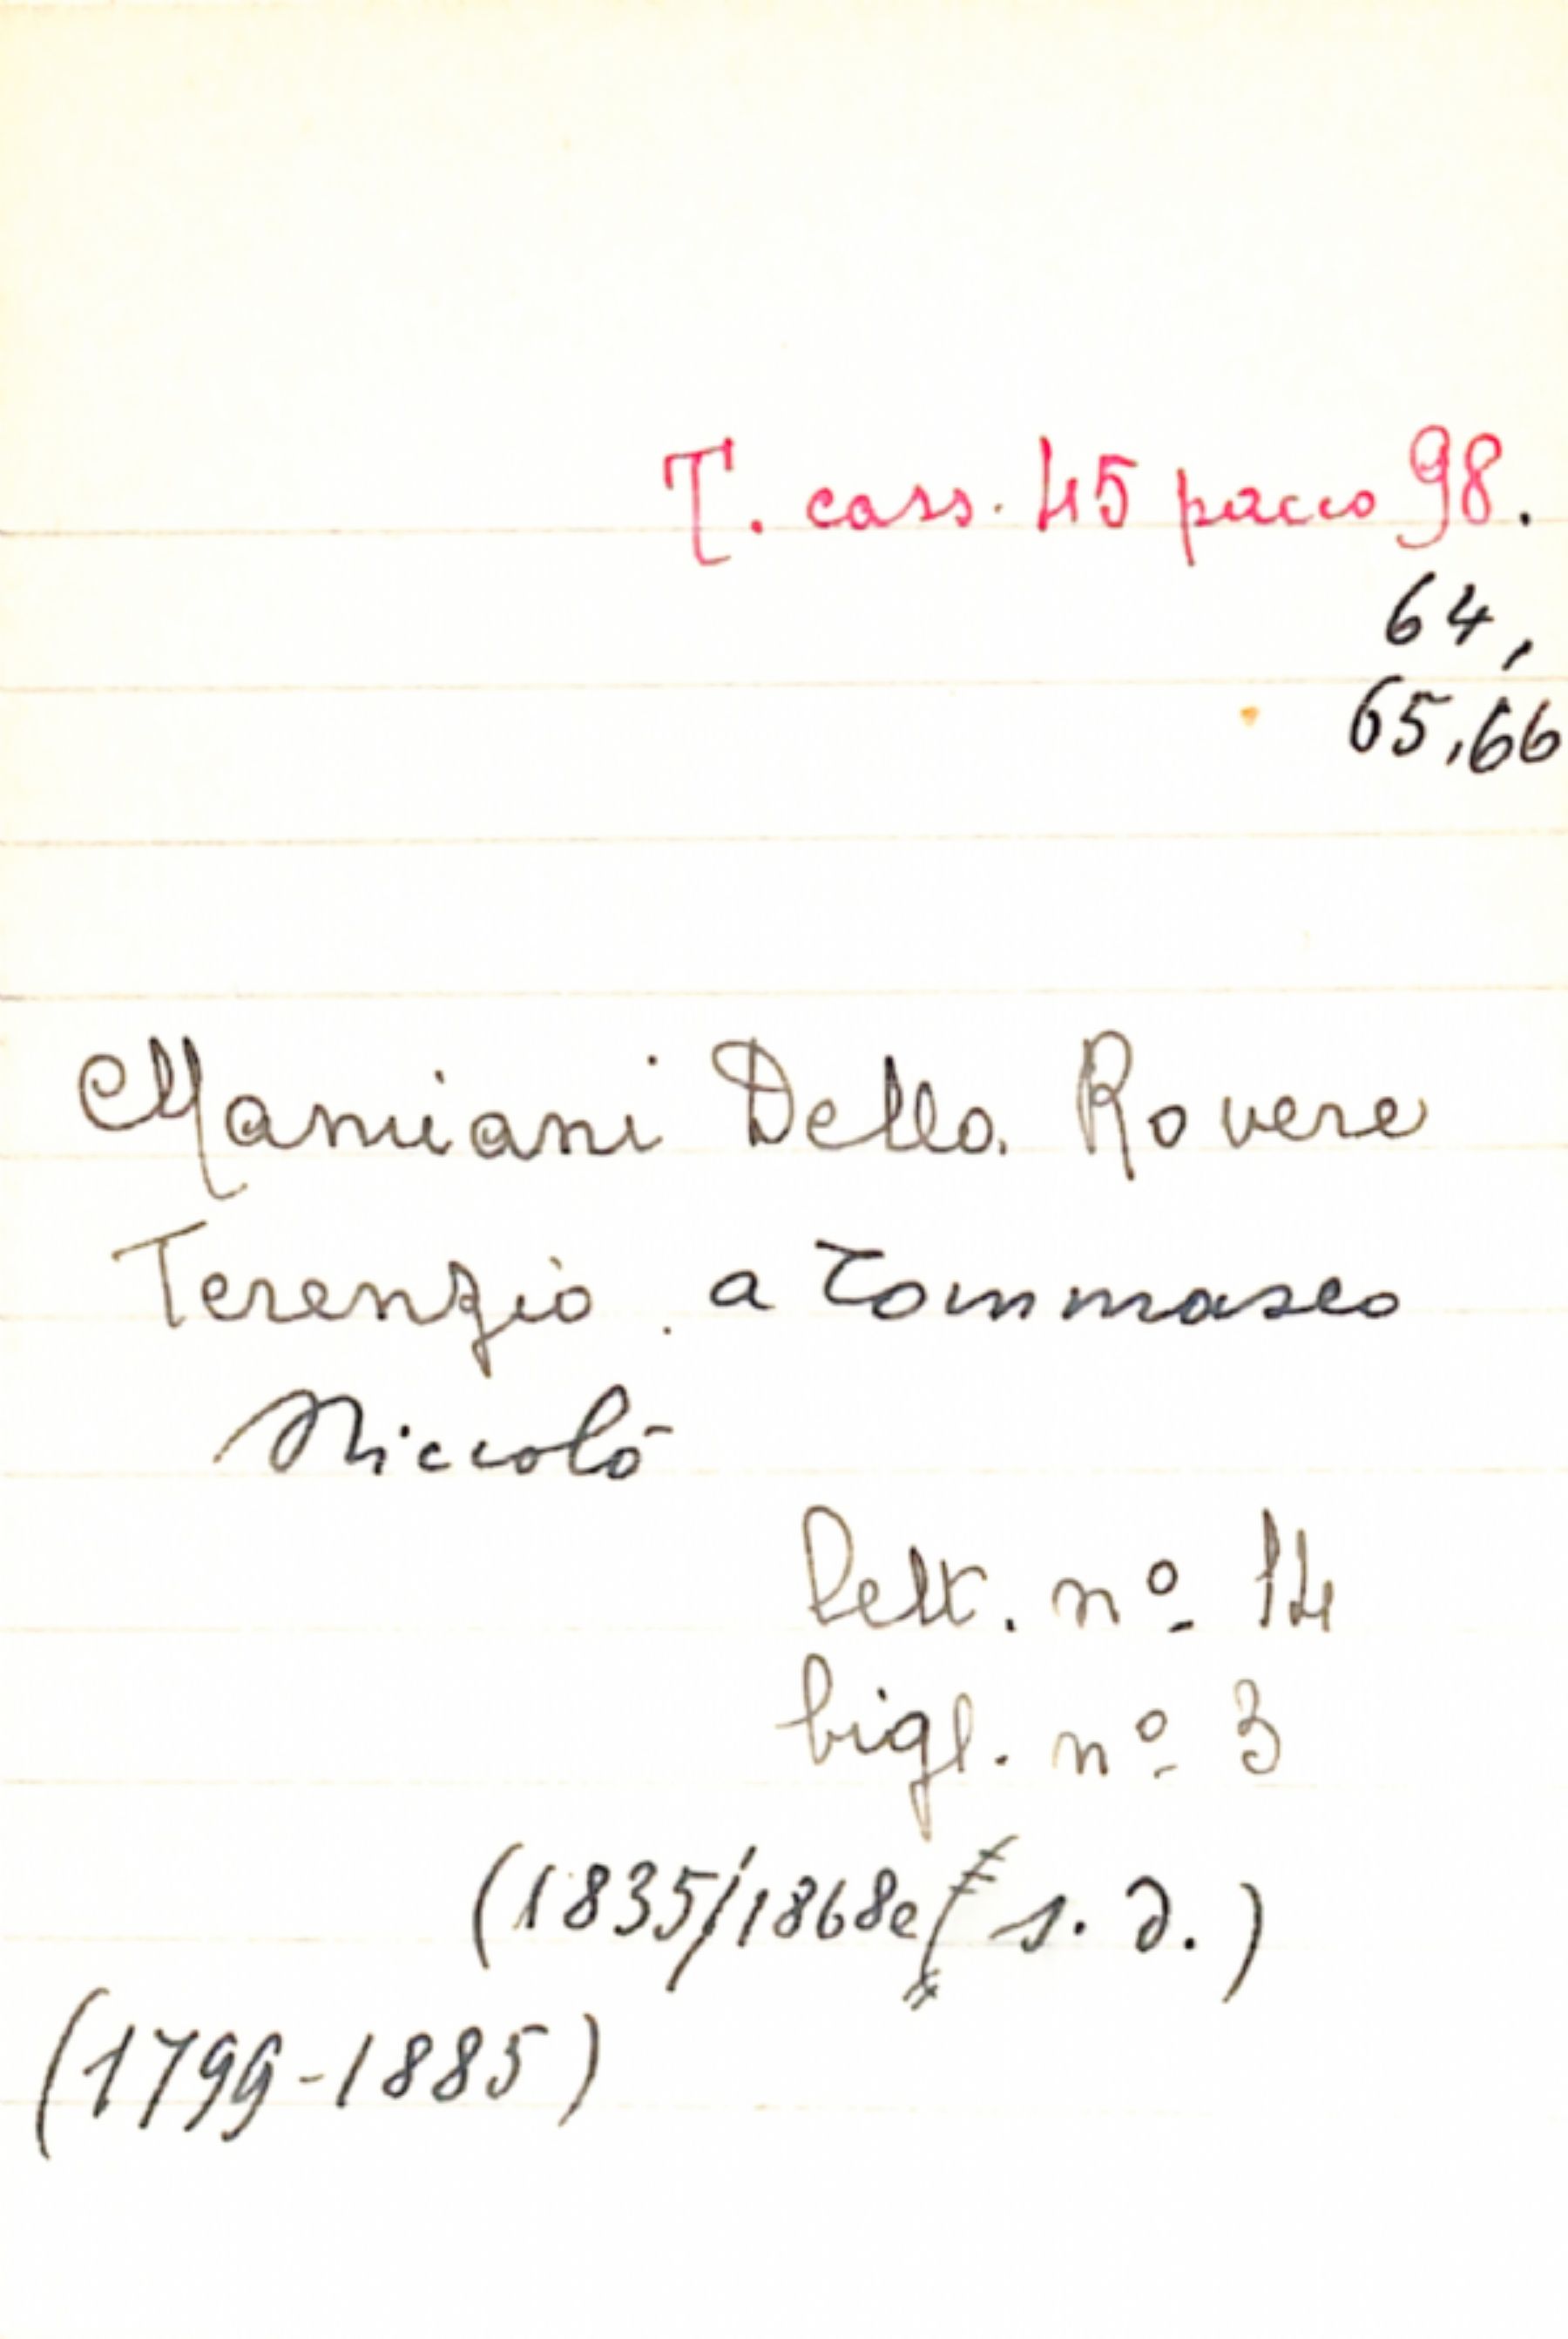 T. cass. 45 pacco 98.
64,
65,66
Mamiani Della Rovere
Terenzio. a Tommaseo
Niccolò
lett. nº 14
bigl. nº 3
(1835/1868e s. d.)
(1799-1885)